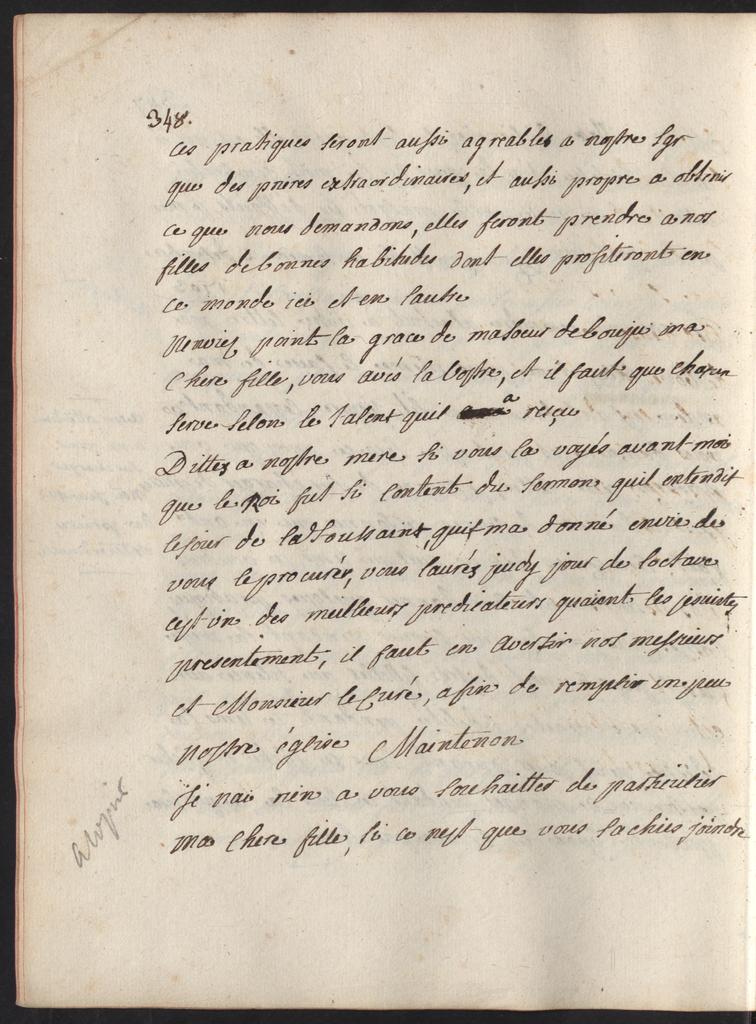 348.
ces pratiques seront aussi agreables a nostre Sgr
que des prieres extraordinaires, et aussi propre a obtenir
ce que nous demandons, elles feront prendre a nos
filles de bonnes habitudes dont elles profiteront en
ce monde ici et en lautre
Nenviez point la grace de masoeur de bouju ma
Chere fille, vous avés la Vostre, et il faut que chacun
serve selon le talent quil a resçu
Dittes a nostre mere si vous la voyés avant moi
que le Roi fut si content du sermon quil entendit
lejour de la Toussaint quil ma donné envie de
vous le procurer, vous laurés judy jour de loctave
cest un des meilleurs predicateurs quaient les jesuistes
presentement, il faut en avertir nos messieurs
et Monsieur le Curé, afin de remplir un peu
nostre église Maintenon
Je nai rien a vous souhaitter de particulier
ma Chere fille, si ce nest que vous sachies joindre